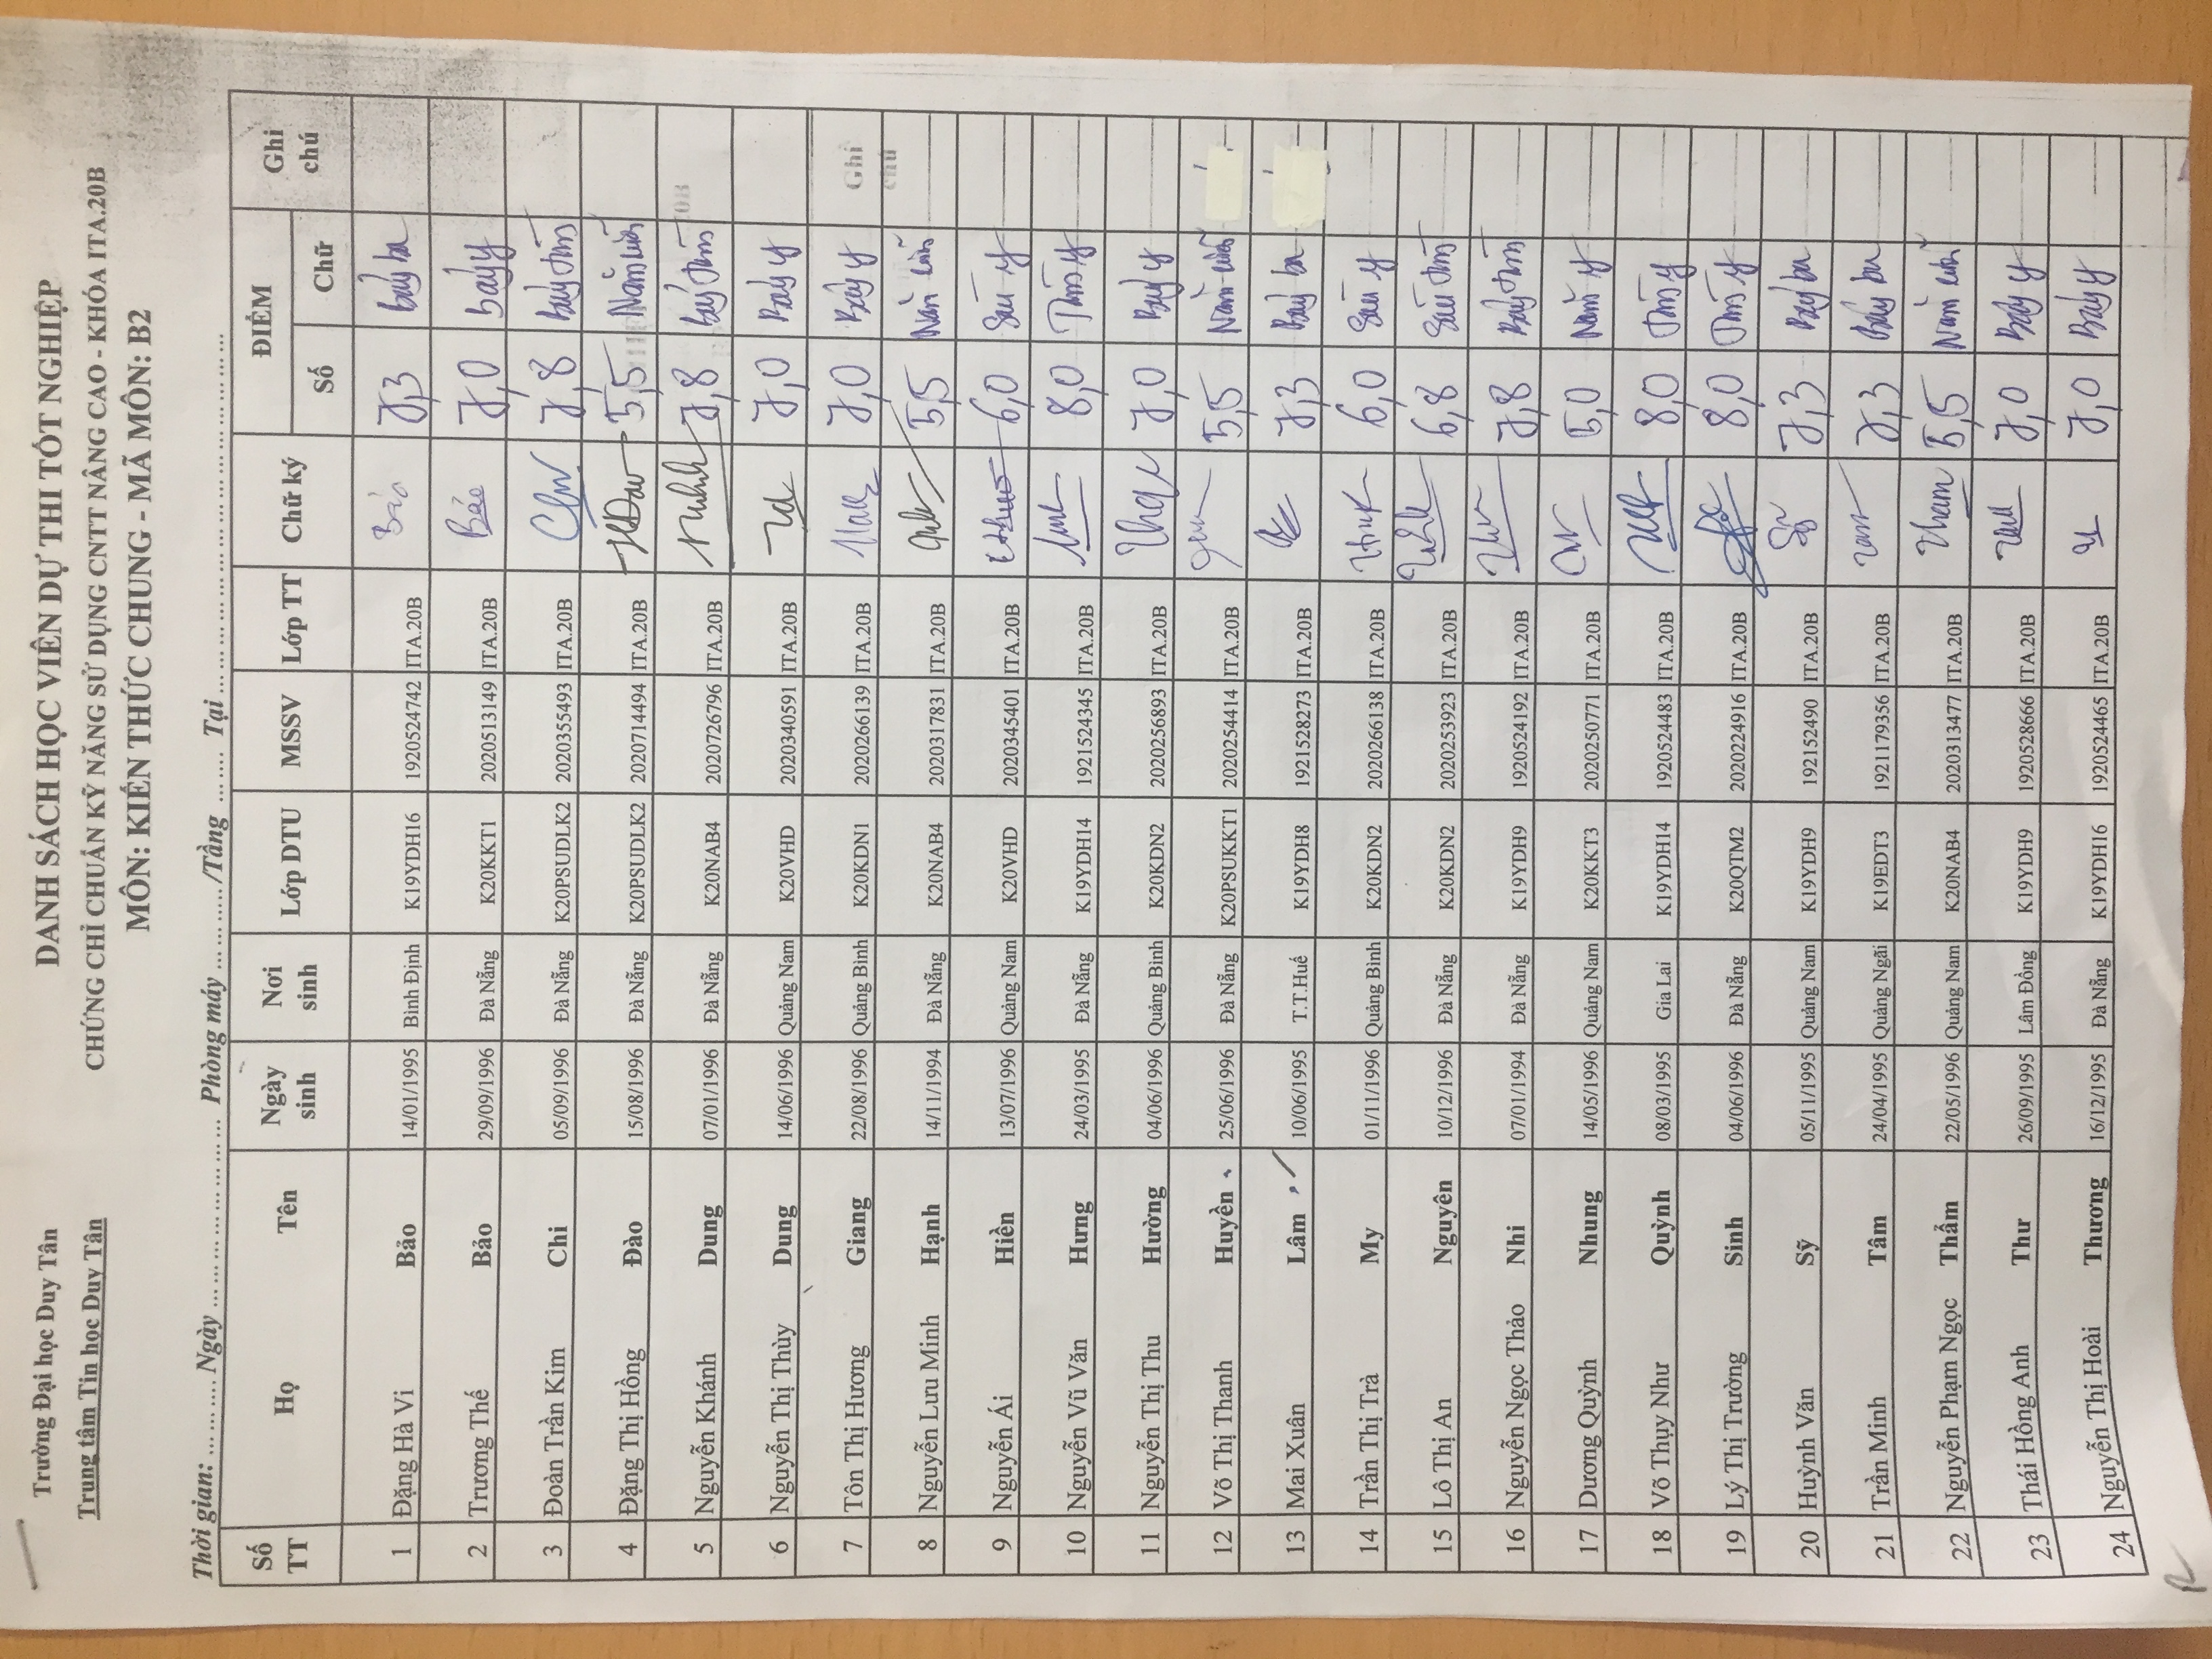 Trường Đại học Duy Tân
Trung tâm Tin học Duy Tân
DANH SÁCH HỌC VIÊN DỰ THI TỐT NGHIỆP
CHỨNG CHỈ CHUẨN KỸ NĂNG SỬ DỤNG CNTT NÂNG CAO - KHÓA ITA.20B
MÔN: KIẾN THỨC CHUNG - MÃ MÔN: B2
Thời gian: ........... Ngày ........................ Phòng máy ............/Tầng ...... Tại ........................
Số TT Họ Tên Ngày sinh Nơi sinh Lớp DTU MSSV Lớp TT Chữ ký ĐIỂM Số Chữ Ghi chú
1 Đặng Hà Vi Bảo 14/01/1995 Bình Định K19YDH16 1920524742 ITA.20B Bảo 7,3 Bảy ba
2 Trương Thế Bảo 29/09/1996 Đà Nẵng K20KKT1 2020513149 ITA.20B Bảo 7,0 Bảy
3 Đoàn Trần Kim Chi 05/09/1996 Đà Nẵng K20PSUDLK2 2020355493 ITA.20B 7,8 Bảy tám
4 Đặng Thị Hồng Đào 15/08/1996 Đà Nẵng K20PSUDLK2 2020714494 ITA.20B 5,5 Năm rưỡi
5 Nguyễn Khánh Dung 07/01/1996 Đà Nẵng K20NAB4 2020726796 ITA.20B 7,8 Bảy tám
6 Nguyễn Thị Thùy Dung 14/06/1996 Quảng Nam K20VHD 2020340591 ITA.20B 7,0 Bảy y
7 Tôn Thị Hương Giang 22/08/1996 Quảng Bình K20KDN1 2020266139 ITA.20B 7,0 Bảy y Ghi chú
8 Nguyễn Lưu Minh Hạnh 14/11/1994 Đà Nẵng K20NAB4 2020317831 ITA.20B 5,5 Năm rưỡi
9 Nguyễn Ái Hiền 13/07/1996 Quảng Nam K20VHD 2020345401 ITA.20B 6,0 Sáu y
10 Nguyễn Vũ Văn Hưng 24/03/1995 Đà Nẵng K19YDH14 1921524345 ITA.20B 8,0 Tám y
11 Nguyễn Thị Thu Hường 04/06/1996 Quảng Bình K20KDN2 2020256893 ITA.20B 7,0 Bảy y
12 Võ Thị Thanh Huyền 25/06/1996 Đà Nẵng K20PSUKKT1 2020254414 ITA.20B 5,5 Năm rưỡi
13 Mai Xuân Lâm 10/06/1995 T.T.Huế K19YDH8 1921528273 ITA.20B 7,3 Bảy ba
14 Trần Thị Trà My 01/11/1996 Quảng Bình K20KDN2 2020266138 ITA.20B 6,0 Sáu y
15 Lô Thị An Nguyên 10/12/1996 Đà Nẵng K20KDN2 2020253923 ITA.20B 6,8 Sáu tám
16 Nguyễn Ngọc Thảo Nhi 07/01/1994 Đà Nẵng K19YDH9 1920524192 ITA.20B 7,8 Bảy tám
17 Dương Quỳnh Nhung 14/05/1996 Quảng Nam K20KKT3 2020250771 ITA.20B 5,0 Năm y
18 Võ Thụy Như Quỳnh 08/03/1995 Gia Lai K19YDH14 1920524483 ITA.20B 8,0 Tám y
19 Lý Thị Trường Sinh 04/06/1996 Đà Nẵng K20QTM2 2020224916 ITA.20B 8,0 Tám y
20 Huỳnh Văn Sỹ 05/11/1995 Quảng Nam K19YDH9 192152490 ITA.20B 7,3 Bảy ba
21 Trần Minh Tâm 24/04/1995 Quảng Ngãi K19EDT3 1921179356 ITA.20B 7,3 Bảy ba
22 Nguyễn Phạm Ngọc Thắm 22/05/1996 Quảng Nam K20NAB4 2020313477 ITA.20B Tham 5,5 Năm rưỡi
23 Thái Hồng Anh Thư 26/09/1995 Lâm Đồng K19YDH9 1920528666 ITA.20B 7,0 Bảy y
24 Nguyễn Thị Hoài Thương 16/12/1995 Đà Nẵng K19YDH16 1920524465 ITA.20B 7,0 Bảy y